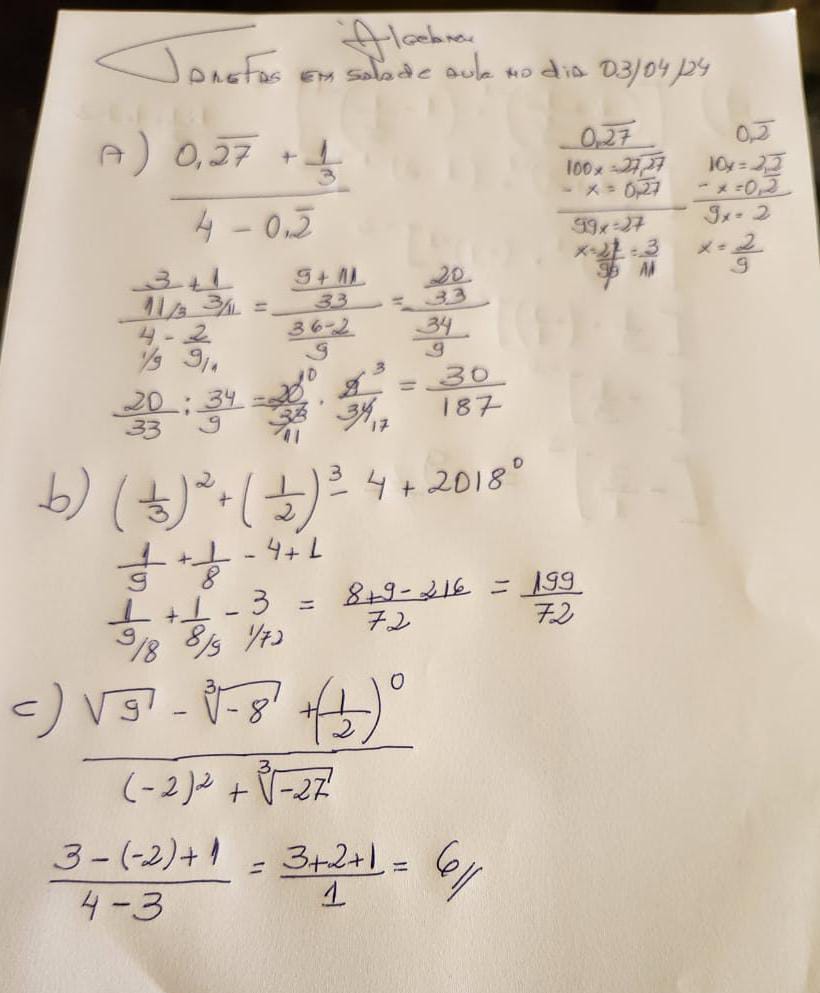 Álgebra
Tarefas em sala de aula no dia 03/04/24
A) (0,2̅7̅ + 1/3) / (4 - 0,2̅)
0,2̅7̅
100x = 27,2̅7̅
- x = 0,2̅7̅
99x = 27
x = 27/99 = 3/11
0,2̅
10x = 2,2̅
- x = 0,2̅
9x = 2
x = 2/9
(3/11/3 + 1/3/11) / (4/1/9 - 2/9/1) = ((9+11)/33) / ((36-2)/9) = (20/33) / (34/9)
20/33 : 34/9 = 20 10/33 11 · 9 3/34 17 = 30/187
b) (1/3)² + (1/2)³ - 4 + 2018⁰
1/9 + 1/8 - 4 + 1
1/9/8 + 1/8/9 - 3 1/72 = (8+9-216)/72 = 199/72
c) (√9 - ³√-8 + (1/2)⁰) / ((-2)² + ³√-27)
(3-(-2)+1)/(4-3) = (3+2+1)/1 = 6//